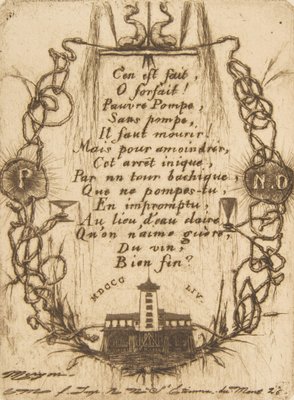 C'en est fait,
O forfait!
Pauvre Pompe,
Sans pompe,
Il faut mourir.
Mais pour amoindrir,
Cet arrêt inique,
Par un tour bachique,
Que ne pompes-tu,
En impromptu,
Au lieu d'eau claire,
Qu'on n'aime guère,
Du vin,
Bien fin?
P
N.D
MDCCC LIV.
St Etienne du Mont 26.